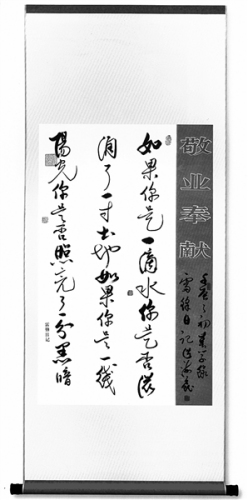 敬业奉献
如果你是一滴水你是否滋
润了一寸土地如果你是一线
阳光你是否照亮了一分黑暗
雷锋日记